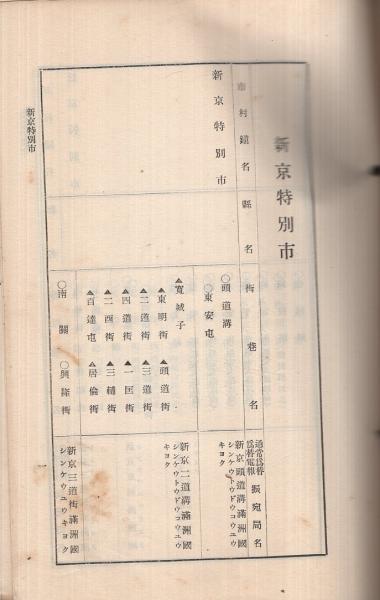 新京特別市
市村鎮名
縣名
街巷名
通常爲替
爲替電報
振宛局名
新京特別市
〇頭道溝
〇東安屯
新京頭道溝滿洲國
シンケウトウドウコウユウ
キヨク
▲寬城子
▲東明街 ▲頭道街
▲二道街 ▲三道街
▲四道街 ▲一匡街
▲二酉街 ▲三輔街
▲百達屯 ▲居倫街
新京二道溝滿洲國
シンケウトウドウコウユウ
キヨク
〇南關 〇興隆街
新京三道街滿洲國
シンケウユウキヨク
新京特別市